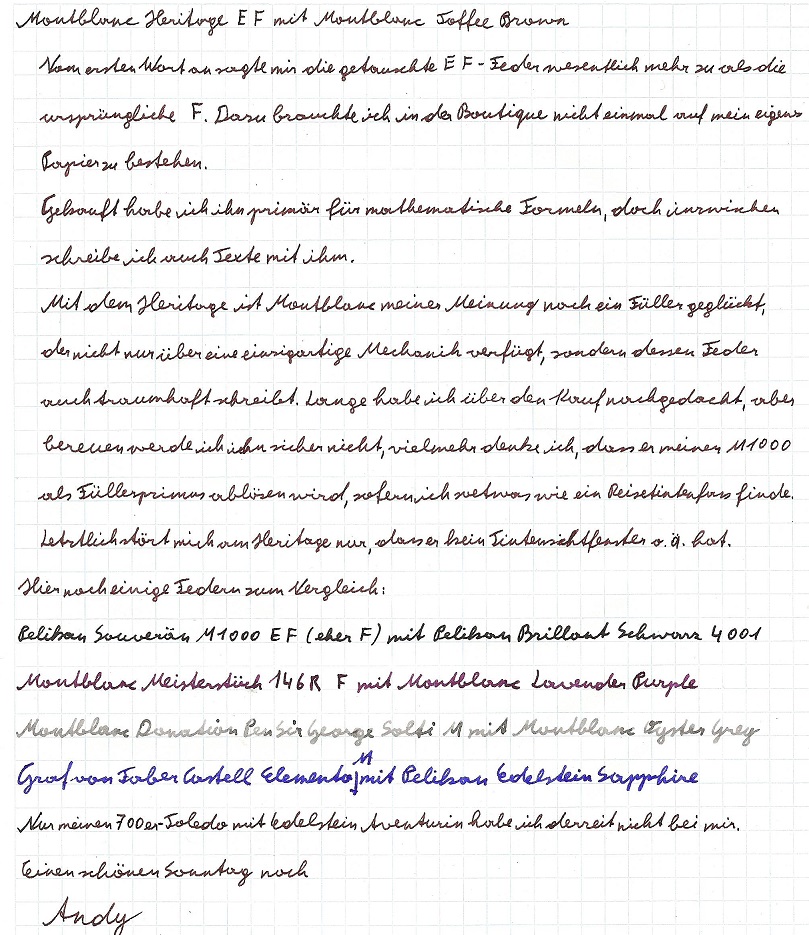 Montblanc Heritage EF mit Montblanc Toffee Brown
Vom ersten Wort an sagte mir die getauschte EF-Feder wesentlich mehr zu als die
ursprüngliche F. Dazu brauchte ich in der Boutique nicht einmal auf mein eigens
Papier zu bestehen.
Gekauft habe ich ihn primär für mathematische Formeln, doch inzwischen
schreibe ich auch Texte mit ihm.
Mit dem Heritage ist Montblanc meiner Meinung noch ein Füller geglückt,
der nicht nur über eine einzigartige Mechanik verfügt, sondern dessen Feder
auch traumhaft schreibt. Lange habe ich über den Kauf nachgedacht, aber
bereuen werde ich ihn sicher nicht, vielmehr denke ich, dass er meinen M1000
als Füllerprimus ablösen wird, sofern ich so etwas wie ein Reisetintenfass finde.
Letztlich stört mich am Heritage nur, dass er kein Tintensichtfenster o.ä. hat.
Hier noch einige Federn zum Vergleich:
Pelikan Souverän M1000 EF (eher F) mit Pelikan Brillant Schwarz 4001
Montblanc Meisterstück 146R F mit Montblanc Lavender Purple
Montblanc Donation Pen Sir George Solti M mit Montblanc Oyster Grey
Graf von Faber Castell Elemento M mit Pelikan Edelstein Sapphire
Nur meinen 700er-Toledo mit Edelstein Aventurin habe ich derzeit nicht bei mir.
Einen schönen Sonntag noch
Andy